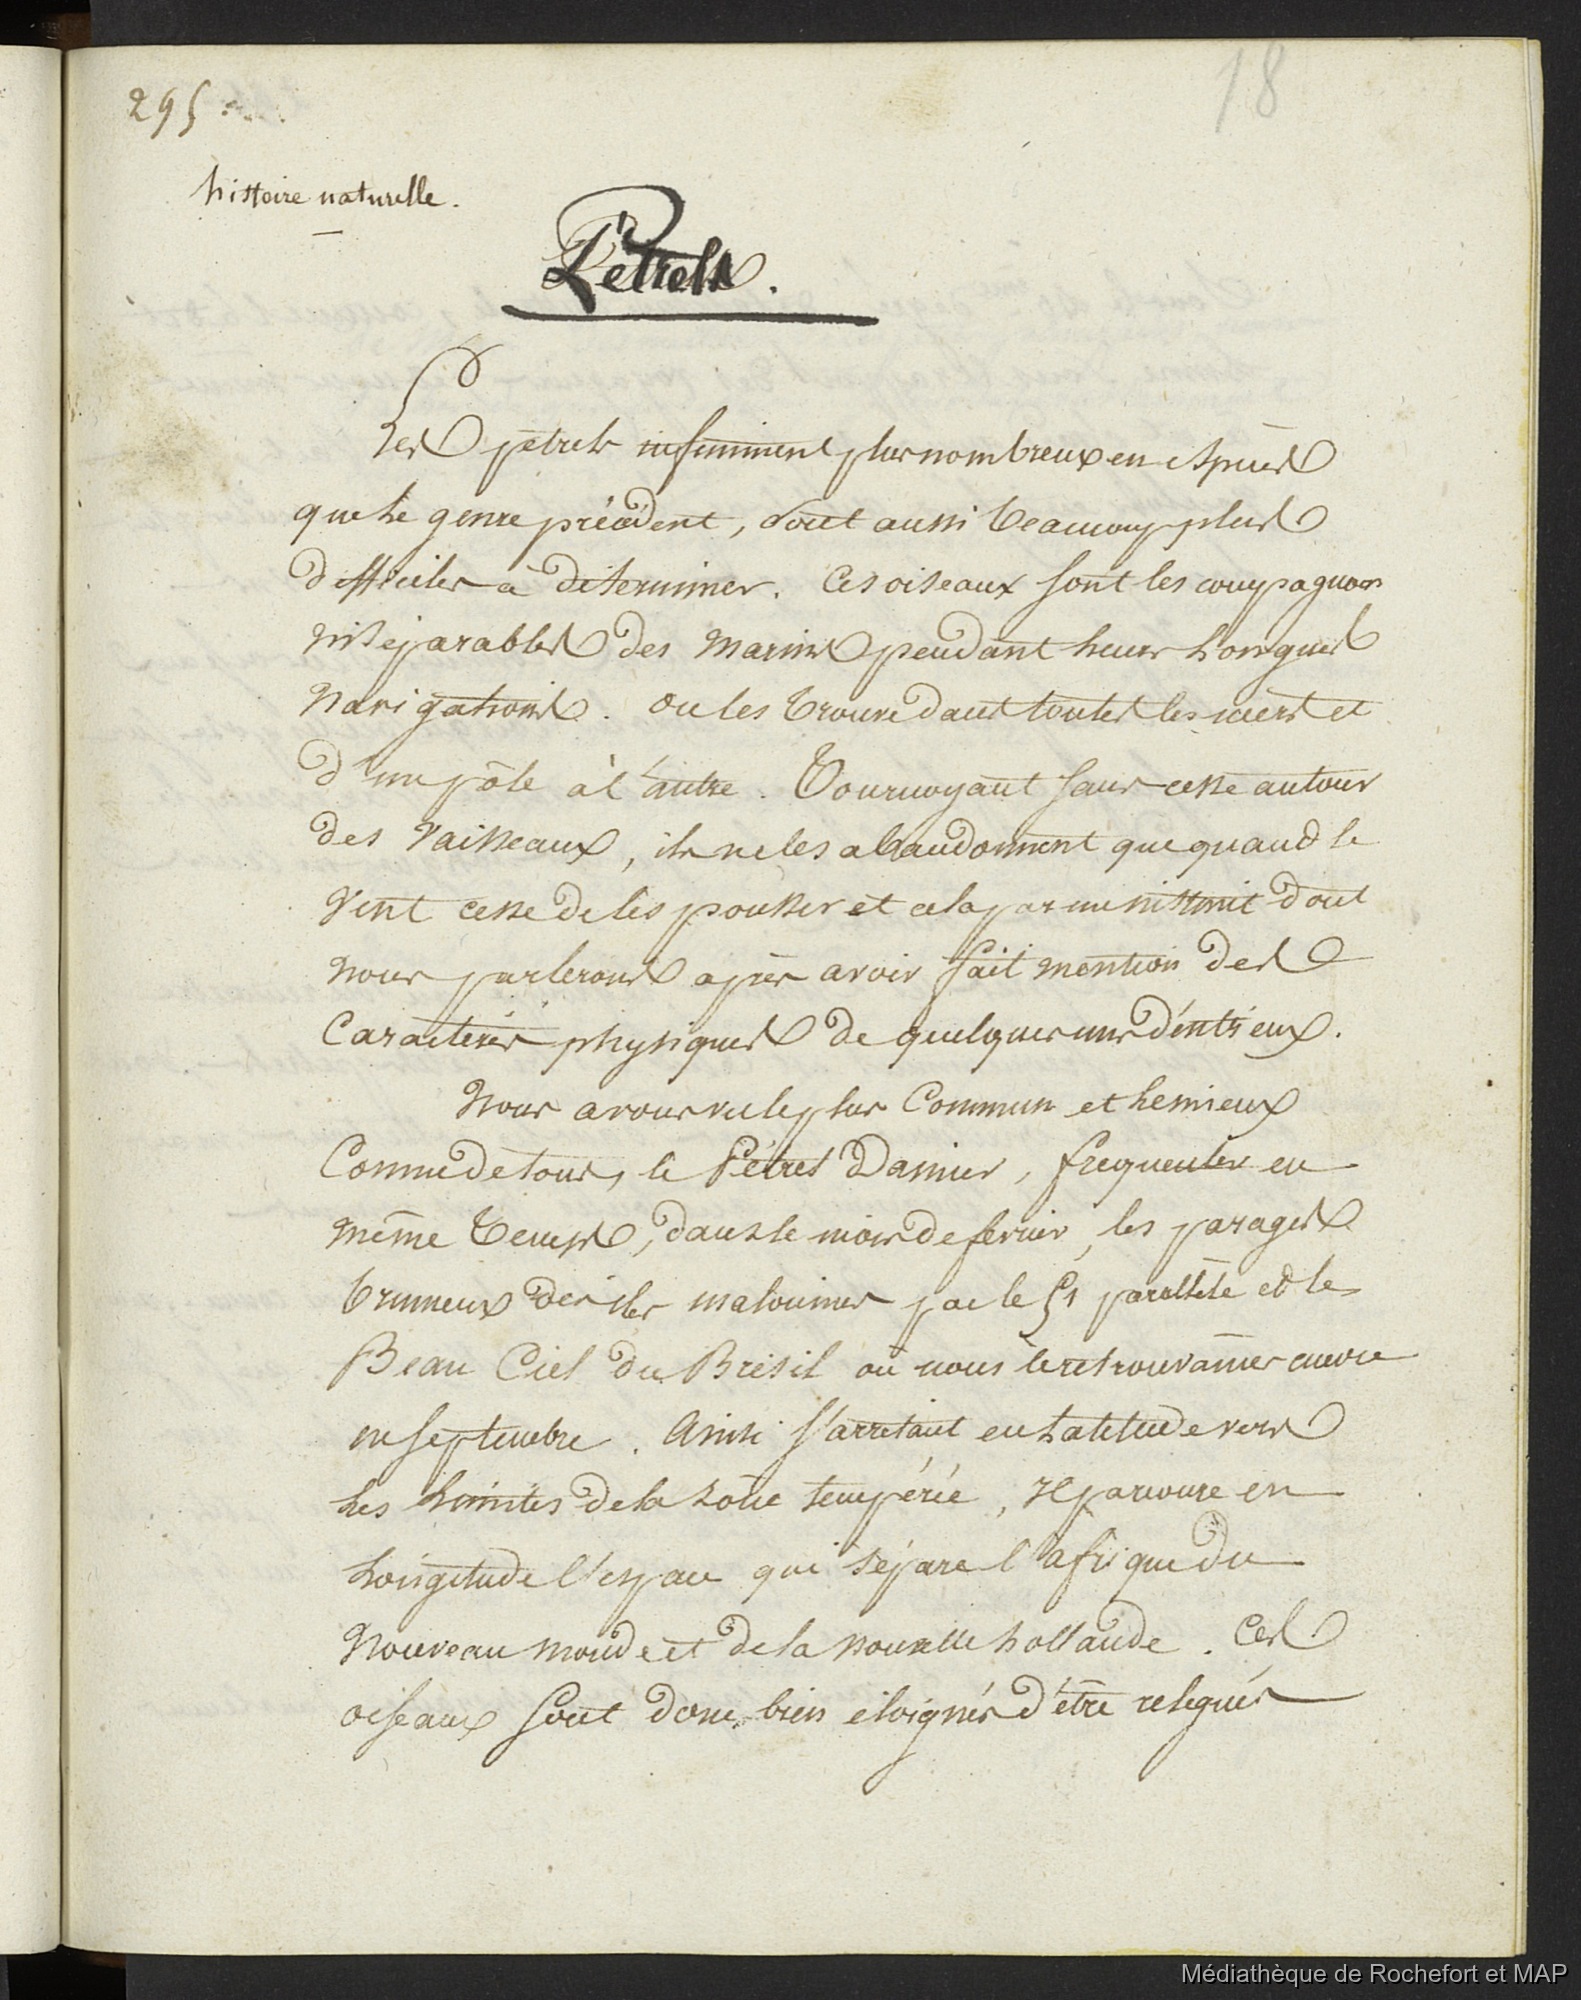 295
18
histoire naturelle.
Pétrels.
Les pétrels infiniment plus nombreux en espèces
que le genre précédent, sont aussi beaucoup plus
difficiles à déterminer. Ces oiseaux sont les compagnons
inséparables des marins pendant leurs longues
navigations. on les trouve dans toutes les mers et
d'un pôle à l'autre. Tournoyant sans cesse autour
des vaisseaux, ils ne les abandonnent que quand le
vent cesse de les pousser et cela par un instinct dont
nous parlerons après avoir fait mention des
caractères physiques de quelques uns d'entr'eux.
Nous avons vu le plus commun et le mieux
connu de tous, le Pétrel Damier, frequenter en
même temps, dans le mois de fevrier, les parages
brumeux des iles malouines par le 51 parallèle et le
Beau Ciel du Brésil où nous le retrouvâmes encore
en septembre. Ainsi s'arretant en Latitude vers
les limites de la zône tempérée, il parcoure en
Longitude l'espace qui sépare l'afrique du
Nouveau monde et de la nouvelle hollande. Ces
oiseaux sont donc bien éloignés d'être relegués
Médiathèque de Rochefort et MAP